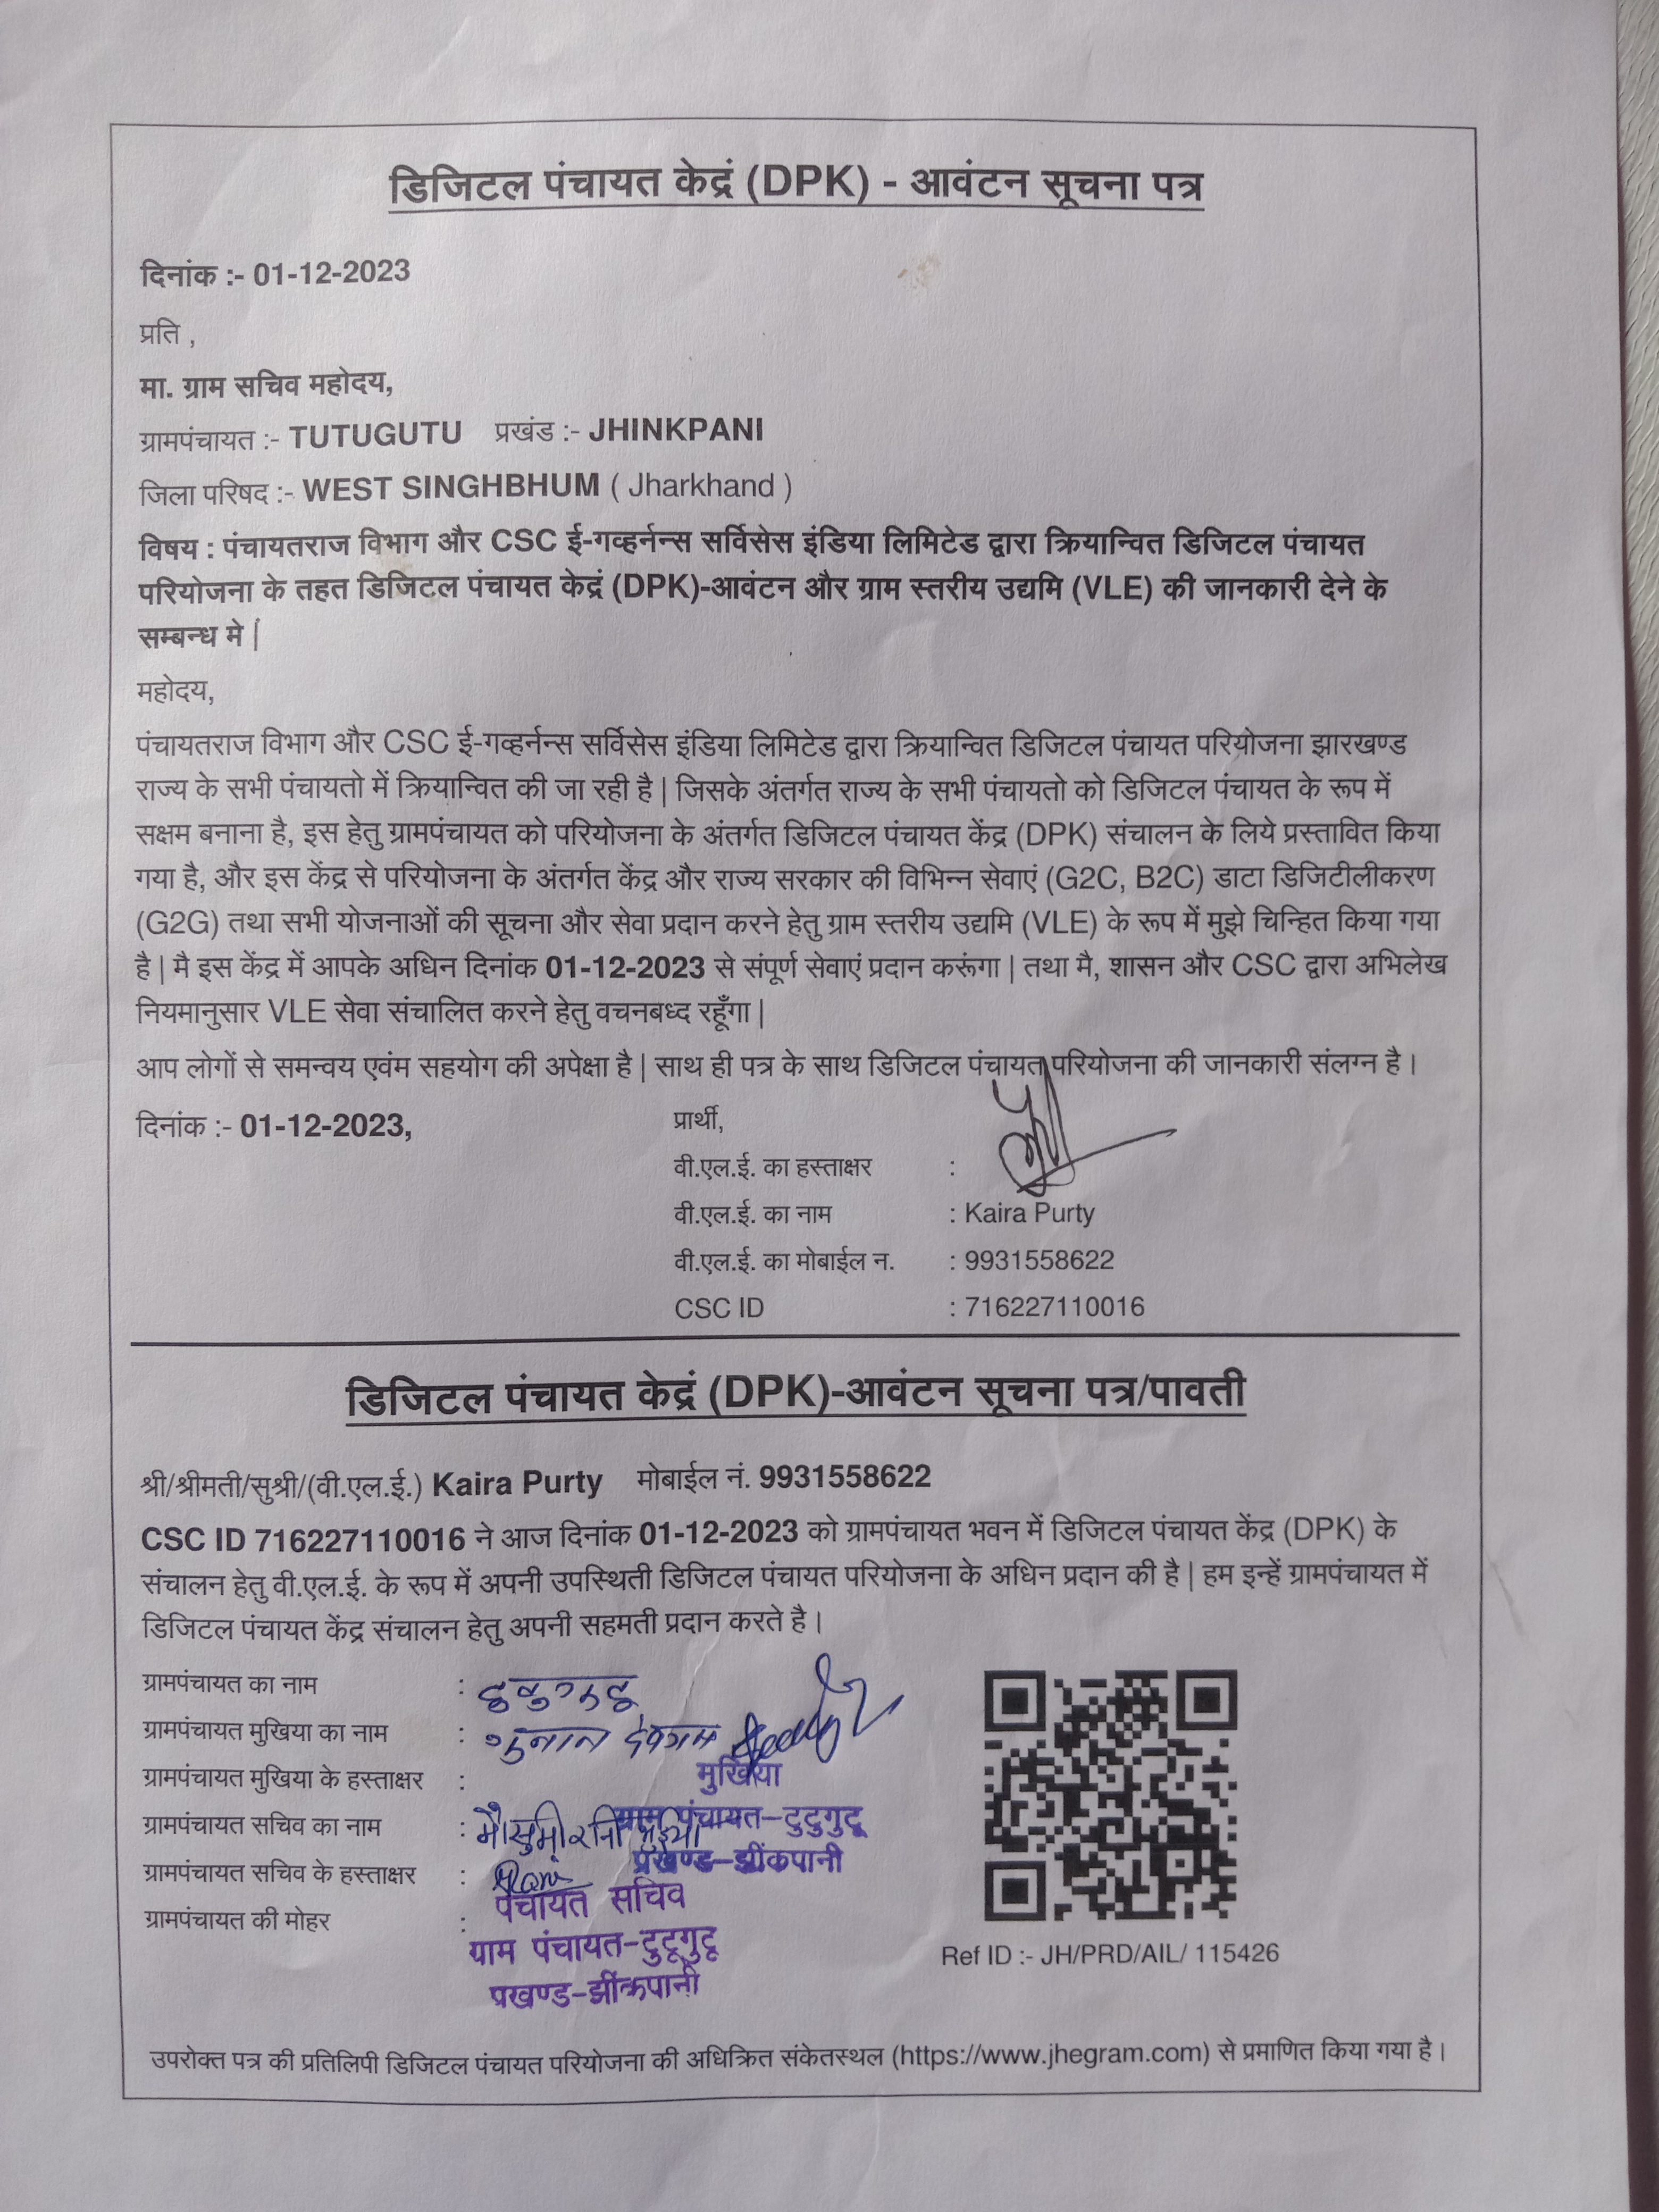 डिजिटल पंचायत केद्रं (DPK) - आवंटन सूचना पत्र
दिनांक :- 01-12-2023
प्रति ,
मा. ग्राम सचिव महोदय,
ग्रामपंचायत :- TUTUGUTU प्रखंड :- JHINKPANI
जिला परिषद :- WEST SINGHBHUM ( Jharkhand )
विषय : पंचायतराज विभाग और CSC ई-गव्हर्नन्स सर्विसेस इंडिया लिमिटेड द्वारा क्रियान्वित डिजिटल पंचायत
परियोजना के तहत डिजिटल पंचायत केद्रं (DPK)-आवंटन और ग्राम स्तरीय उद्यमि (VLE) की जानकारी देने के
सम्बन्ध मे |
महोदय,
पंचायतराज विभाग और CSC ई-गव्हर्नन्स सर्विसेस इंडिया लिमिटेड द्वारा क्रियान्वित डिजिटल पंचायत परियोजना झारखण्ड
राज्य के सभी पंचायतो में क्रियान्वित की जा रही है | जिसके अंतर्गत राज्य के सभी पंचायतो को डिजिटल पंचायत के रूप में
सक्षम बनाना है, इस हेतु ग्रामपंचायत को परियोजना के अंतर्गत डिजिटल पंचायत केंद्र (DPK) संचालन के लिये प्रस्तावित किया
गया है, और इस केंद्र से परियोजना के अंतर्गत केंद्र और राज्य सरकार की विभिन्न सेवाएं (G2C, B2C) डाटा डिजिटीलीकरण
(G2G) तथा सभी योजनाओं की सूचना और सेवा प्रदान करने हेतु ग्राम स्तरीय उद्यमि (VLE) के रूप में मुझे चिन्हित किया गया
है | मै इस केंद्र में आपके अधिन दिनांक 01-12-2023 से संपूर्ण सेवाएं प्रदान करूंगा | तथा मै, शासन और CSC द्वारा अभिलेख
नियमानुसार VLE सेवा संचालित करने हेतु वचनबध्द रहूँगा |
आप लोगों से समन्वय एवंम सहयोग की अपेक्षा है | साथ ही पत्र के साथ डिजिटल पंचायत परियोजना की जानकारी संलग्न है ।
दिनांक :- 01-12-2023,
प्रार्थी,
वी.एल.ई. का हस्ताक्षर :
वी.एल.ई. का नाम : Kaira Purty
वी.एल.ई. का मोबाईल न. : 9931558622
CSC ID : 716227110016
डिजिटल पंचायत केद्रं (DPK)-आवंटन सूचना पत्र/पावती
श्री/श्रीमती/सुश्री/(वी.एल.ई.) Kaira Purty मोबाईल नं. 9931558622
CSC ID 716227110016 ने आज दिनांक 01-12-2023 को ग्रामपंचायत भवन में डिजिटल पंचायत केंद्र (DPK) के
संचालन हेतु वी.एल.ई. के रूप में अपनी उपस्थिती डिजिटल पंचायत परियोजना के अधिन प्रदान की है | हम इन्हें ग्रामपंचायत में
डिजिटल पंचायत केंद्र संचालन हेतु अपनी सहमती प्रदान करते है ।
ग्रामपंचायत का नाम :
ग्रामपंचायत मुखिया का नाम :
ग्रामपंचायत मुखिया के हस्ताक्षर :
मुखिया
ग्राम पंचायत-टुटुगुटू
प्रखण्ड-झींकपानी
ग्रामपंचायत सचिव का नाम :
ग्रामपंचायत सचिव के हस्ताक्षर :
ग्रामपंचायत की मोहर :
पंचायत सचिव
ग्राम पंचायत-टुटूगुटू
प्रखण्ड-झींकपानी
Ref ID :- JH/PRD/AIL/ 115426
उपरोक्त पत्र की प्रतिलिपी डिजिटल पंचायत परियोजना की अधिक्रित संकेतस्थल (https://www.jhegram.com) से प्रमाणित किया गया है ।